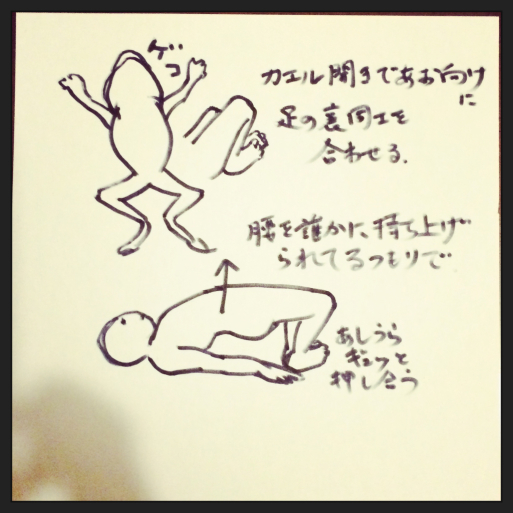 ゲコ
カエル開きであお向け
に
足の裏同士を
合わせる.
腰を誰かに持ち上げ
られてるつもりで
あしうら
ギュッと
押し合う